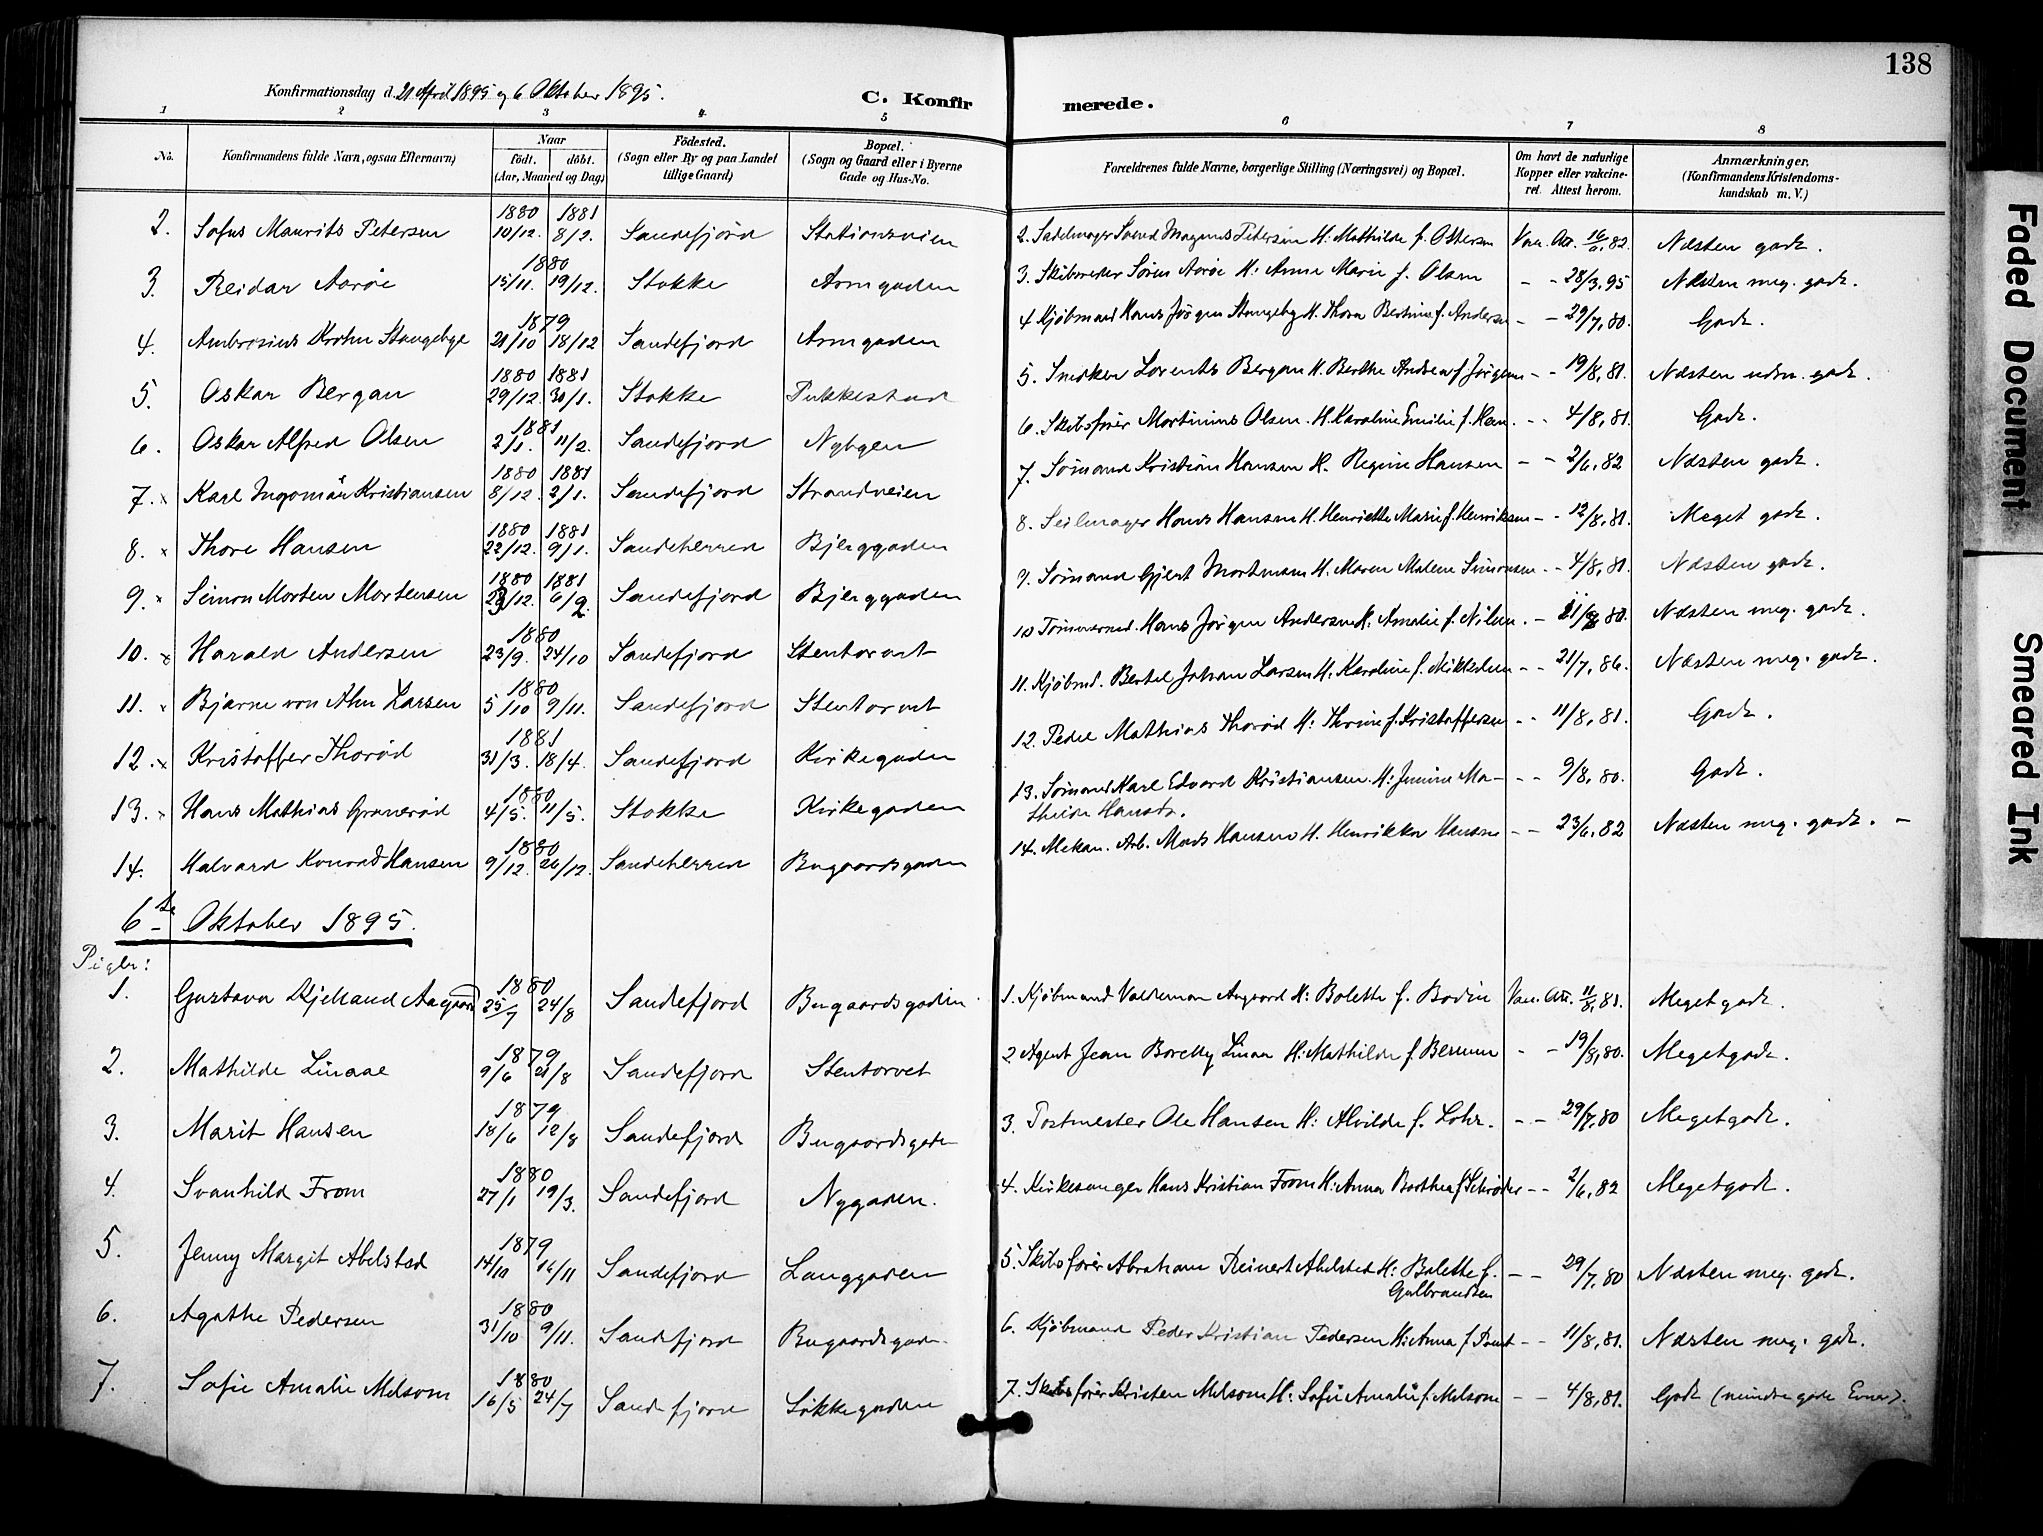 138
Konfirmationsdag d. 21 April 1895 og 6 Oktober 1895.
C. Konfirmerede.
1 2 3 4 5 6 7 8
No.
Konfirmandens fulde Navn, ogsaa Efternavn)
Naar
födt. döbt.
(Aar, Maaned og Dag)
Födested.
(Sogn eller By og paa Landet
tillige Gaard)
Bopæl.
(Sogn og Gaard eller i Byerne
Gade og Hus-No.
Forældrenes fulde Navne, borgerlige Stilling (Næringsvei) og Bopæl.
Om havt de naturlige
Kopper eller vakcine-
ret. Attest herom.
Anmærkninger.
(Konfirmandens Kristendoms-
kundskab m. V.)
2. Sofus Maurits Petersen 1880 10/12. 1881 8/2. Sandefjord Stationsveien 2. Sadelmager Svend Magnus Petersen H: Mathilde f. Ottersen Vac. Att. 82. Næsten godt.
3. Reidar Aarøe 1880 15/11. 19/12. Stokke Asmgaden 3. Skibsreder Søren Aarøe H: Anne Marie f. Olsen - - 28/3, 95 Næsten meg. godt.
4. Ambrosius Krohn Stangebye 1879 21/10 18/12 Sandefjord Asmgaden 4 Kjøbmand Hans Jörgen Stangeby H. Thora Bertine f. Andersen - - 29/7, 80. Godt.
5. Oskar Bergan 1880 29/12. 1881 30/1. Stokke Pukkestad 5. Snedker Lorents Bergan H. Berthe Andrea f. Jörgensen - - 19/8, 81. Næsten udm. godt.
6. Oskar Alfred Olsen 1881 2/1. 11/2. Sandefjord Nybyen 6. Skibsfører Martinius Olsen H. Karoline Emilie f. Hen. - - 4/8, 81. Godt.
7. x Karl Ingomar Kristiansen 1880 8/12. 1881 2/1. Sandefjord Strandveien 7. Sömand Kristian Hansen H. Regine Hansen - - 2/6, 82 Næsten godt.
8. x Thore Hansen 1880 22/12. 1881 9/1. Sandeherred Bjerggaden 8. Seilmager Hans Hansen H. Henriette Marie f. Henriksen - - 12/8, 81. Meget godt.
9. x Simon Morten Mortensen 1880 23/12. 1881 6/2. Sandefjord Bjerggaden 9. Sömand Gjert Mortensen H. Maren Malene Simonsen - - 4/8, 81. Næsten godt.
10. x Harald Andersen 1880 23/9. 24/10 Sandefjord Stentorvet 10 Tømmermd. Hans Jörgen Andersen H. Amalie f. Nilsen. - 80. Næsten meg. godt.
11. x Bjarne von Ahn Larsen 1880 5/10 9/11. Sandefjord Stentorvet 11. Kjøbmd. Bertel Johan Larsen H. Karoline f. Mikkelsen - - 21/7, 86. Næsten meg. godt.
12. x Kristoffer Thorød 1881 31/3. 18/4. Sandefjord Kirkegaden 12. Pedel Mathias Thorød H: Thrine f. Kristoffersen - - 11/8, 81. Godt.
13. x Hans Mathias Granerød 1880 4/5. 11/5. Stokke Kirkegaden 13. Sømand Karl Edvard Kristiansen. H: Jensine Ma-
thilde Hansdr. - - 9/8, 80. Godt.
14. Halvard Konrad Hansen 1880 9/12. 26/12. Sandeherred Bugaardsgaden 14. Mekan. Arb. Mads Hansen H. Henrikka Hansen - - 23/6, 82 Næsten meg. godt. -
6te Oktober 1895.
Piger:
1. Gustava Kjelland Aagaard 1880 25/7 24/8 Sandefjord Bugaardsgaden 1. Kjøbmand Valdemar Aagaard H: Bolette f. Bodin Vac. Att. 11/8, 81. Meget godt.
2. Mathilde Linaae 1879 9/6 21/8 Sandefjord Stentorvet 2 Agent Jean Linaa H: Mathilde f. - - 19/8, 80. Meget godt.
3. Marit Hansen 1879 18/6 12/8 Sandefjord Bugaardsgaden 3. Postmester Ole Hansen H: Alvilde f. Lohr. - - 29/7, 80 Meget godt.
4. Svanhild From 1880 27/1 19/3. Sandefjord Nygaden. 4. Kirkesanger Hans Kristian From H: Anna Barthea f Schrøder - - 2/6, 82 Meget godt.
5. Jenny Margit Abelsted 1879 14/10 16/11 Sandefjord Langgaden 5. Skibsfører Abraham Reinert Abelsted H: Bolette f.
Gulbrandsen - - 29/7, 80 Næsten meg. godt.
6. Agathe Pedersen 1880 31/10 9/11. Sandefjord Bugaardsgaden 6. Kjøbmand Peder Kristian Pedersen H: Anna f. - - 11/8, 81. Næsten meg. godt.
7. Sofie Amalie Melsom 1880 16/5 24/7 Sandefjord Løkkegaden 7. Skibsfører Kristen Melsom H: Sofie Amalie f. Melsom - - 4/8, 81. Godt (mindre gode Evner).
Faded Document
Smeared Ink